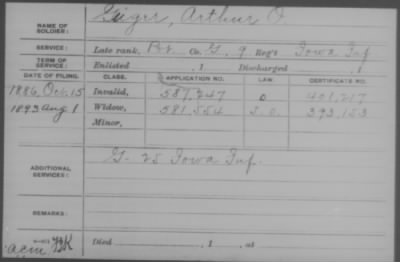 NAME OF SOLDIER: Geiger, Arthur O.
SERVICE: Late rank, Pvt. Co. G, 9 Reg't Iowa Inf
TERM OF SERVICE: Enlisted , 1 Discharged , 1
DATE OF FILING. CLASS. APPLICATION NO. LAW. CERTIFICATE NO.
1886, Oct. 15 Invalid, 587.247 401.217
1893 Aug 1 Widow, 581.554 393.153
Minor,
ADDITIONAL SERVICES: G- 25 Iowa Inf.
REMARKS:
Died , 1 , at